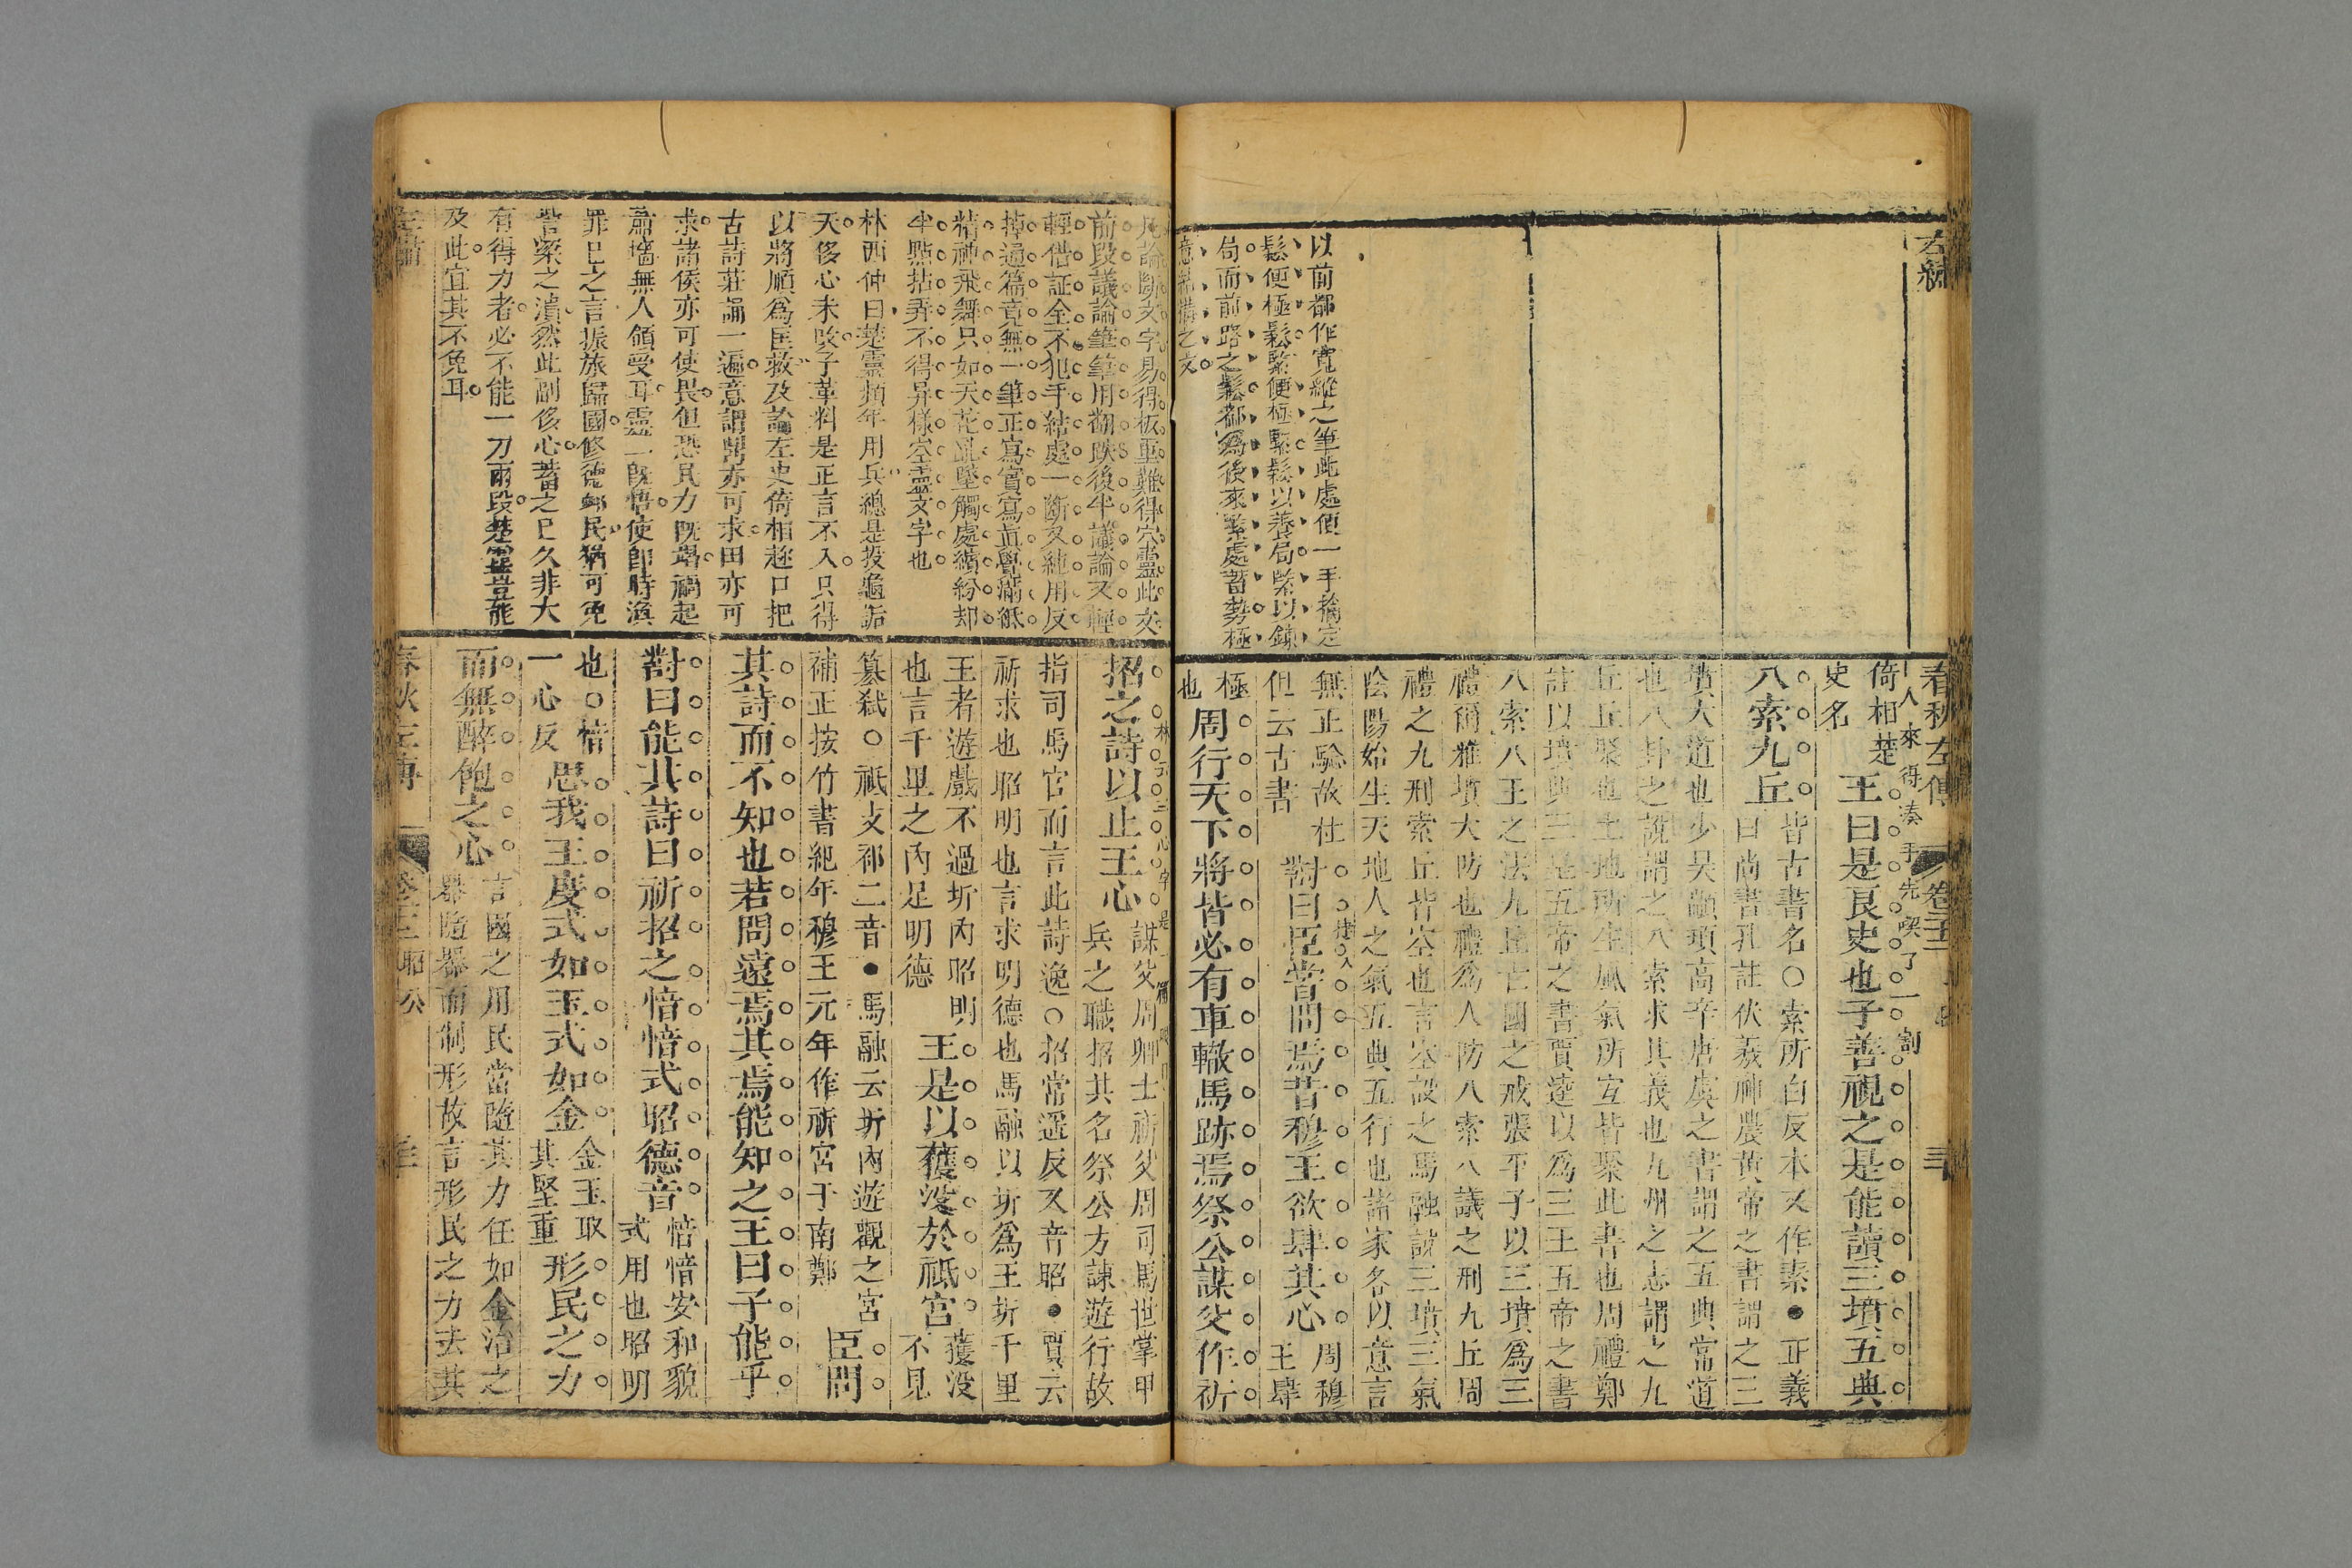 以前都作寬縱之筆此處便一手擒定
鬆便極鬆緊便極緊鬆以養局緊以鍊
局而前路之鬆都爲後來緊處蓄勢極
意結搆之文
春秋左傳
倚相楚
史名
王曰是良史也子善視之是能讀三墳五典
八索九丘
皆古書名○索所白反本又作素●正義
曰尚書孔註伏羲神農黃帝之書謂之三
墳大道也少昊顓頊高辛唐虞之書謂之五典常道
也八卦之說謂之八索求其義也九州之志謂之九
丘丘聚也土地所生風氣所宜皆聚此書也周禮鄭
註以墳典三是五帝之書賈逵以爲三王五帝之書
八索八王之法九丘亡國之戒張平子以三墳爲三
禮爾雅墳大防也禮爲人防八索八議之刑九丘周
禮之九刑索丘皆空也言空設之馬融說三墳三氣
陰陽始生天地人之氣五典五行也諸家各以意言
無正驗故杜
但云古書
對曰臣嘗問焉昔穆王欲肆其心
周穆
王肆
極
也
周行天下將皆必有車轍馬跡焉祭公謀父作祈
凡論斷文字易得板重難得空靈此文
前段議論筆筆用翻跌後半議論又輕
輕借証全不犯手結處一斷又純用反
掉通篇竟無一筆正寫實寫眞覺滿紙
精神飛舞只如天花亂墜觸處繽紛却
半點拈弄不得异樣空靈文字也
林西仲曰楚靈頻年用兵總是投龜詬
天侈心未改子革料是正言不入只得
以將順爲匡救及論左史倚相趂口把
古詩莊誦一遍意謂鼎亦可求田亦可
求諸侯亦可使畏但恐民力既竭禍起
蕭墻無人領受耳靈一旣悟使卽時滅
罪巳之言振旅歸國修德卹民猶可免
訾梁之潰然此副侈心蓄之巳久非大
有得力者必不能一刀兩段楚靈豈能
及此宜其不免耳
招之詩以止王心
謀父周卿士祈父周司馬世掌甲
兵之職招其名祭公方諫遊行故
指司馬官而言此詩逸○招常遥反又音昭●賈云
祈求也昭明也言求明德也馬融以圻爲王圻千里
王者遊戲不過圻內昭明
也言千里之內足明德
王是以獲沒於祗宮
獲沒
不見
簒弑○祗攴祁二音●馬融云圻內遊觀之宮
補正按竹書紀年穆王元年作祈宮于南鄭
臣問
其詩而不知也若問遠焉其焉能知之王曰子能乎
對曰能其詩曰祈招之愔愔式昭德音
愔愔安和貌
式用也昭明
也○愔
一心反
思我王度式如玉式如金
金玉取
其堅重
形民之力
而無醉飽之心
言國之用民當隨其力任如金冶之
器隨器而制形故言形民之力去其
春秋左傳
昭公